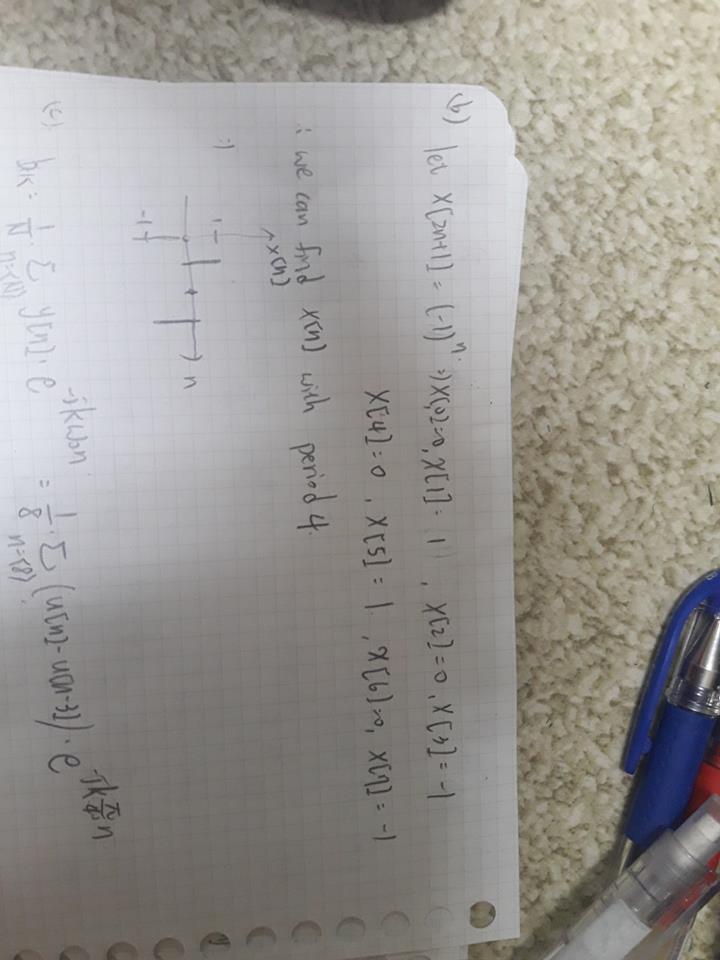 (b) let x[2n+1] = (-1)ⁿ. ⇒ x[0]=0, x[1] = 1 , x[2]=0, x[3] = -1
x[4]=0 , x[5] = 1 , x[6]=0, x[7] = -1
∴ we can find x[n] with period 4.
x[n]
1
-1
n
(c) bk = 1/N · Σ n=<N> y[n] · e^-jkω₀n = 1/8 · Σ n=<8> (u[n] - u[n-7]) · e^-jk π/4 n